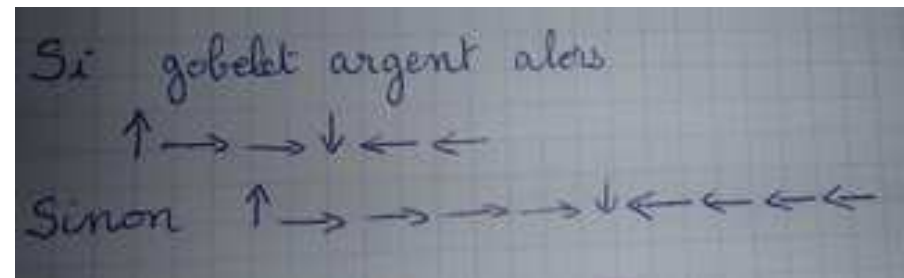 Si gobelet argent alors
↑ → → ↓ ← ←
Sinon ↑ → → → → ↓ ← ← ← ←